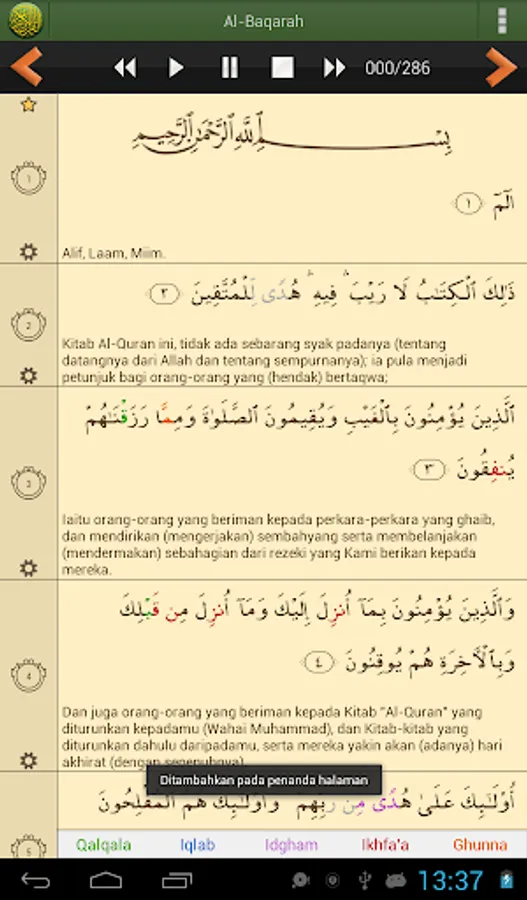 Al-Baqarah
000/286
بِسْمِ اللَّهِ الرَّحْمَٰنِ الرَّحِيمِ
1
الٓمٓ ١
Alif, Laam, Miim.
ذَٰلِكَ الْكِتَابُ لَا رَيْبَ ۛ فِيهِ ۛ هُدًى لِّلْمُتَّقِينَ ٢
2
Kitab Al-Quran ini, tidak ada sebarang syak padanya (tentang
datangnya dari Allah dan tentang sempurnanya); ia pula menjadi
petunjuk bagi orang-orang yang (hendak) bertaqwa;
الَّذِينَ يُؤْمِنُونَ بِالْغَيْبِ وَيُقِيمُونَ الصَّلَوٰةَ وَمِمَّا رَزَقْنَاهُمْ
يُنفِقُونَ ٣
3
Iaitu orang-orang yang beriman kepada perkara-perkara yang ghaib,
dan mendirikan (mengerjakan) sembahyang serta membelanjakan
(mendermakan) sebahagian dari rezeki yang Kami berikan kepada
mereka.
وَالَّذِينَ يُؤْمِنُونَ بِمَآ أُنزِلَ إِلَيْكَ وَمَآ أُنزِلَ مِن قَبْلِكَ
وَبِالْأَخِرَةِ هُمْ يُوقِنُونَ ٤
4
Dan juga orang-orang yang beriman kepada Kitab "Al-Quran" yang
diturunkan kepadamu (Wahai Muhammad), dan Kitab-kitab yang
diturunkan dahulu daripadamu, serta mereka yakin akan (adanya) hari
akhirat (dengan sepenuhnya).
Ditambahkan pada penanda halaman
أُوْلَٰٓئِكَ عَلَىٰ هُدًى مِّن رَّبِّهِمْ وَأُوْلَٰٓئِكَ هُمُ الْمُفْلِحُونَ
5
Qalqala Iqlab Idgham Ikhfa'a Ghunna
13:37